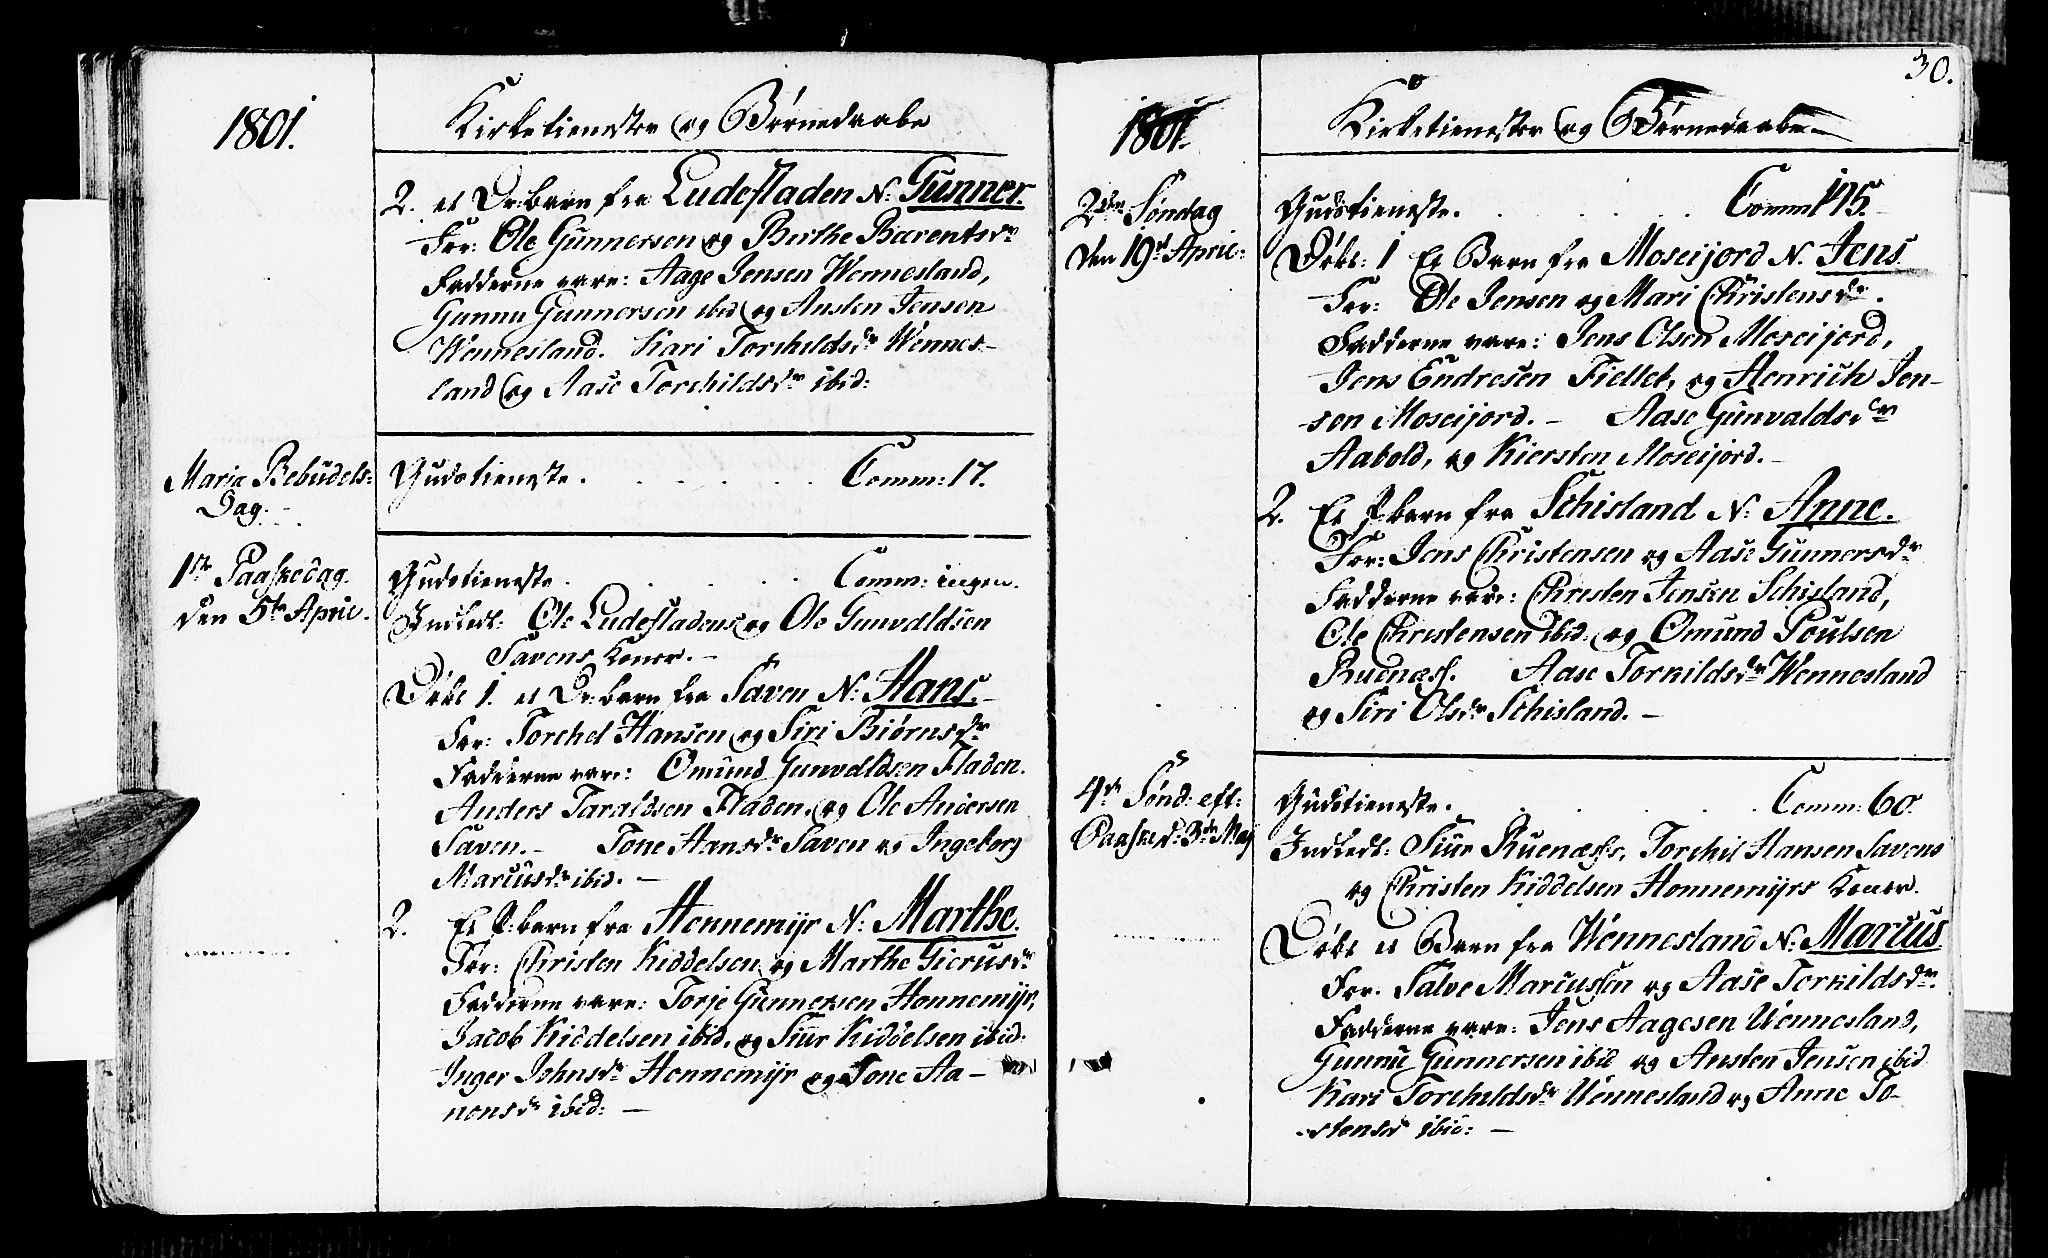 1801.
Kirketienester og Børnedaabe
2. et Dr: barn fra Ludefladen N: Gunner.
For: Ole Gunnersen og Birthe Barentsdr
Fadderne vare: Aage Jensen Wennesland,
Gunnu Gunnersen ibid og Austen Jensen
Wennesland. Kari Torchildsdr Wennes-
land og Aase Torchildsdr ibid:
Mariæ Bebudels-
Dag.
Gudstieneste. Comm: 17.
1ste Paaskedag
den 5te April.
Gudstieneste. Comm: ingen.
Indledt: Ole Ludefladens og Ole Gunvaldsen
Savens Koner. -
Døbt 1. et Dr: barn fra Saven N: Hans. -
For: Torchel Hansen og Siri Biørnsdr
Fadderne vare: Omund Gunvaldsen Fladen.
Anders Taraldsen Fladen, og Ole Andersen
Saven. - Tone Hansdr Saven og Ingeborg
Marcusdr ibid. -
2. Et P: barn fra Honnemyr N: Marthe.
For: Christen Kiddelsen og Marthe Gierusdr
Fadderne vare: Torje Gunnersen Honnemyr,
Jacob Kiddelsen ibid, og Siur Kiddelsen ibid.
Inger Johnsdr Honnemyr og Tone Aa-
nonsdr ibid: -
30.
1801.
Kirketienester og Børnedaabe. -
2den Søndag
den 19de April:
Gudstieneste. Comm 175.
Døbt: 1 Et Barn fra Moseijord N. Jens.
For: Ole Jensen og Mari Christensdr.
Fadderne vare: Jens Olsen Moseijord,
Jens Endresen Fiellet, og Henrich Jen-
sen Moseijord. - Aase Gunvaldsdr
Aabold, og Kiersten Moseijord. -
2. Et P: barn fra Schisland N: Anne.
For: Jens Christensen og Aase Gunnersdr
Fadderne vare: Christen Jensen Schisland,
Ole Christensen ibid. og Omund Poulsen
Ruenæss. Aase Torkildsdr Wennesland
og Siri Olsdr Schisland. -
4de Sønd: eft:
Paaske d: 3de Maj
Gudstieneste. Comm: 60.
Indledt: Siur Ruenæsses, Torchil Hansen Savens
og Christen Kiddelsen Honnemyrs Koner.
Døbt et Barn fra Wennesland N: Marcus.
For. Salve Marcussen og Aase Torkildsdr.
Fadderne vare: Jens Aagesen Wennesland,
Gunnu Gunnersen ibid og Austen Jensen ibid
Kari Torchildsdr Wennesland og Anne To-
stensdr ibid: -